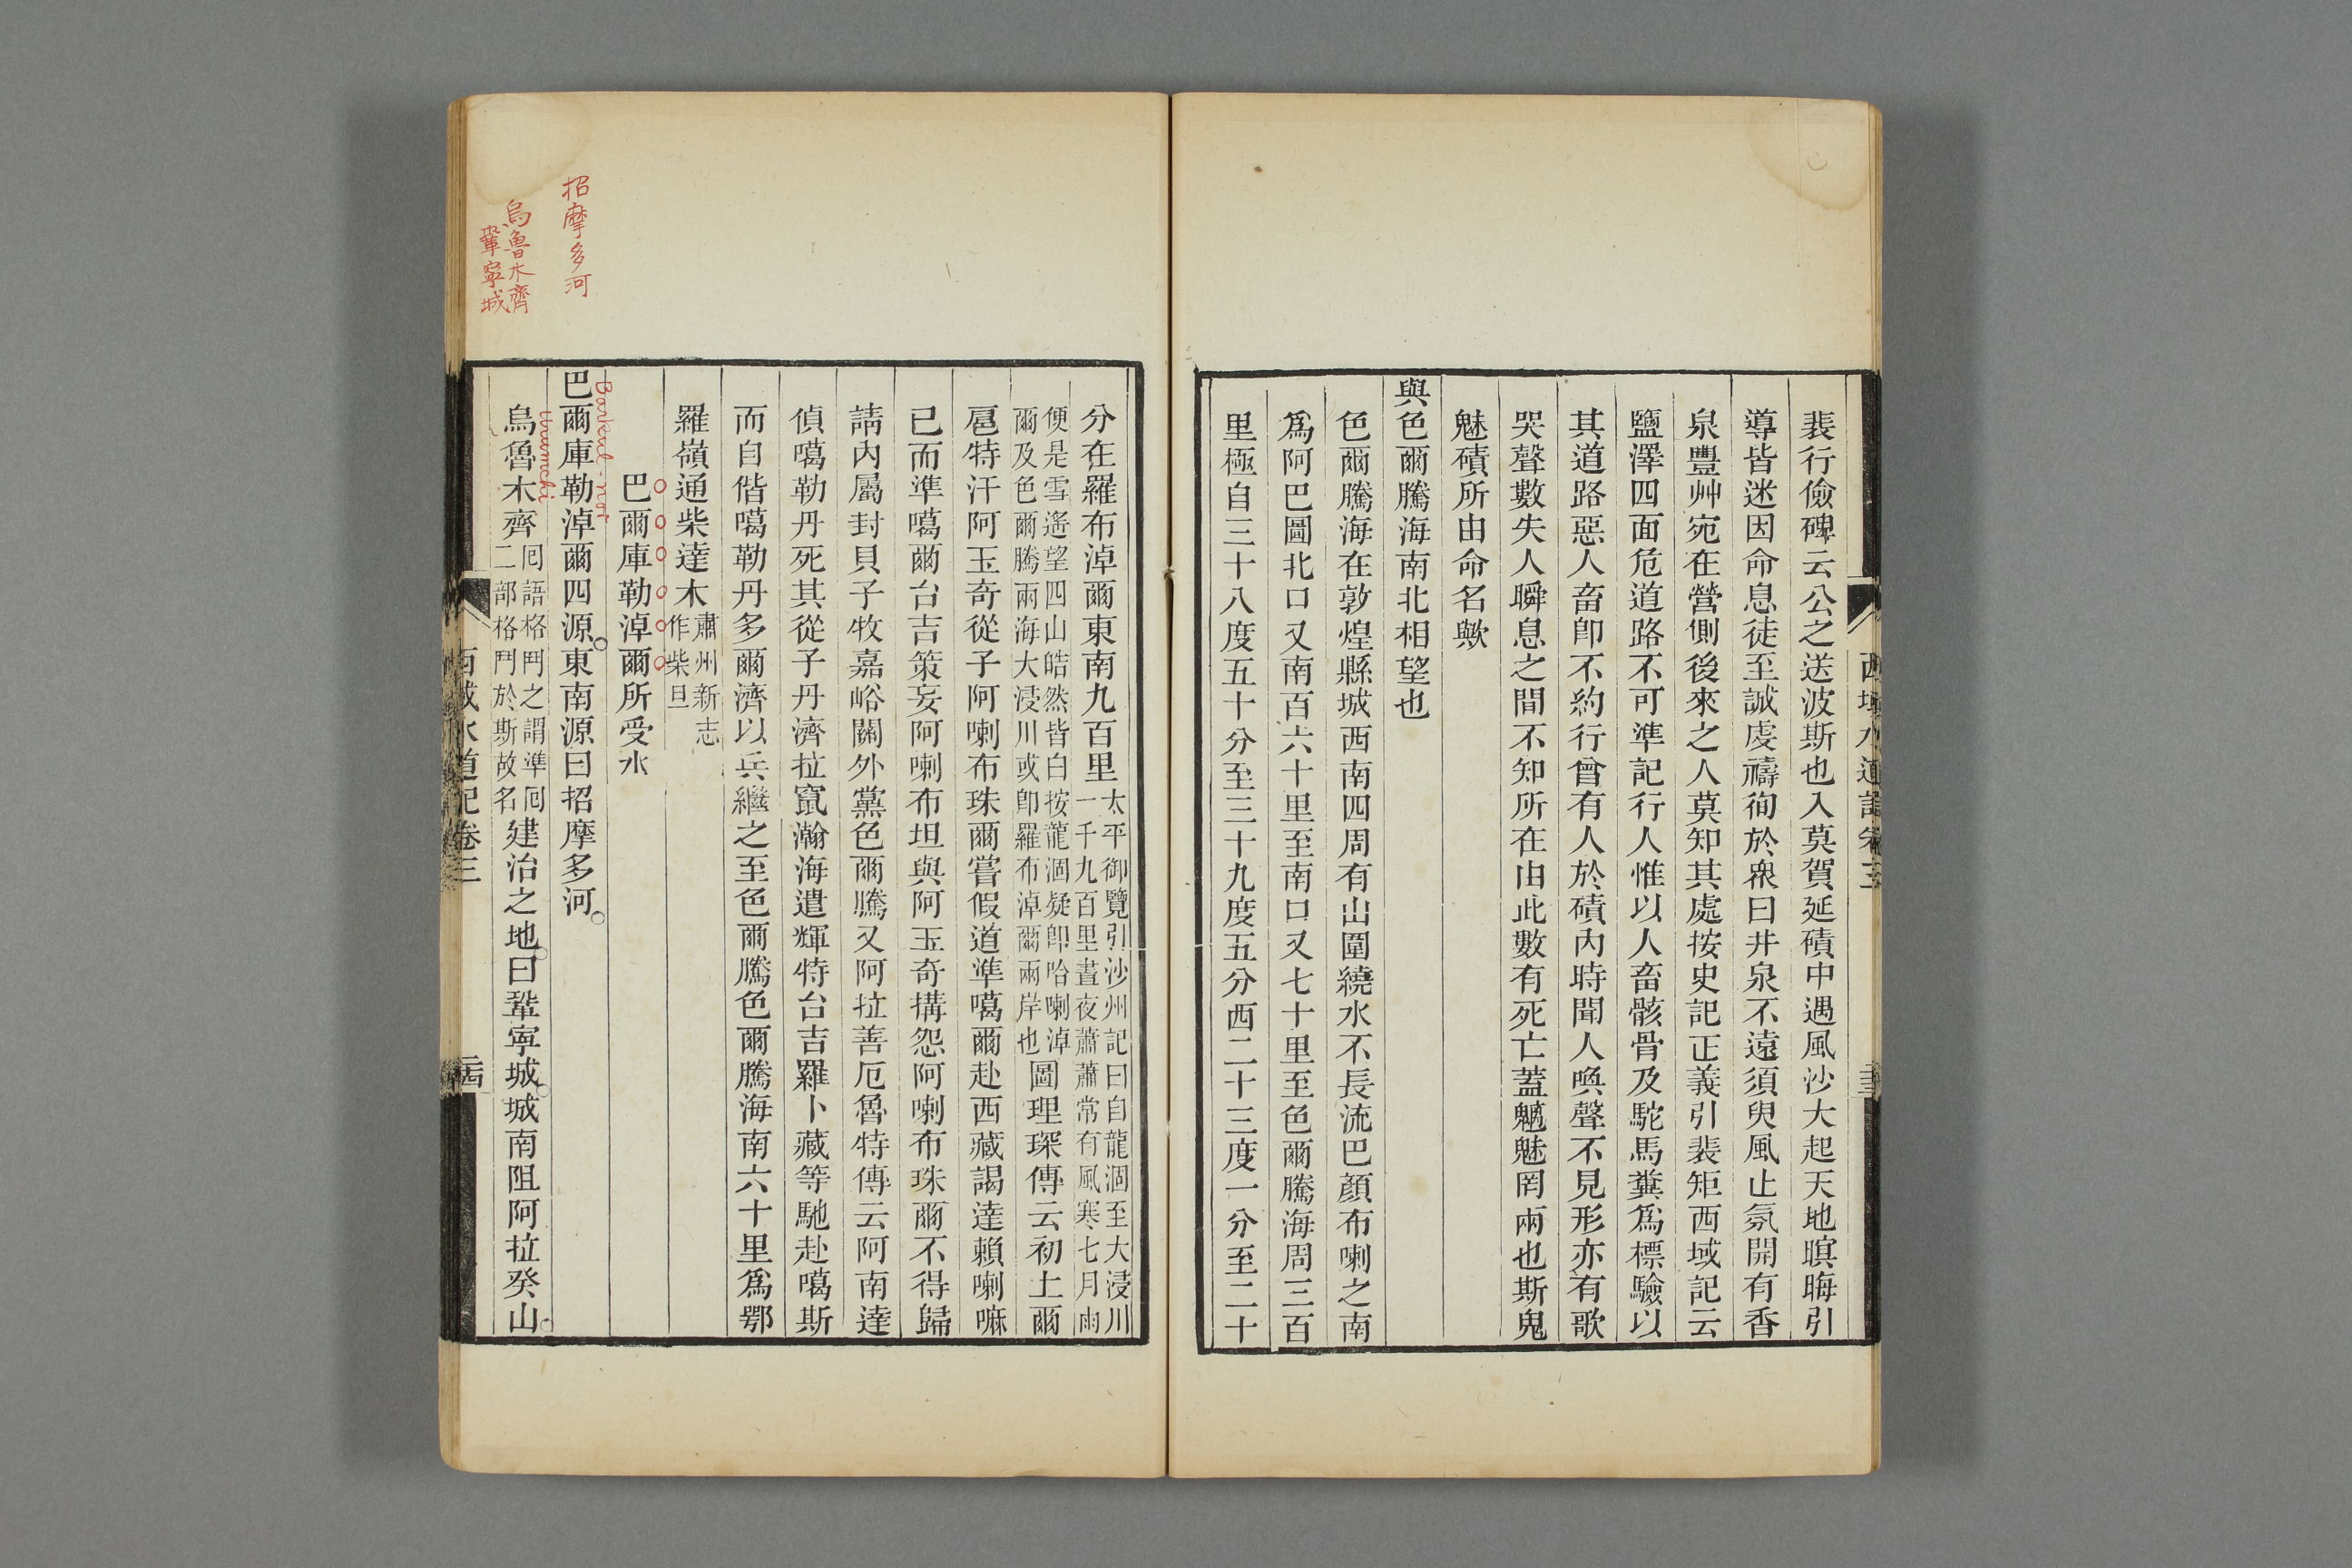 西域水道記卷三
裴行儉碑云公之送波斯也入莫賀延磧中遇風沙大起天地暝晦引
導皆迷因命息徒至誠虔禱徇於衆曰井泉不遠須臾風止氛開有香
泉豐艸宛在營側後來之人莫知其處按史記正義引裴矩西域記云
鹽澤四面危道路不可準記行人惟以人畜骸骨及駝馬糞爲標驗以
其道路惡人畜卽不約行曾有人於磧內時聞人喚聲不見形亦有歌
哭聲數失人瞬息之間不知所在由此數有死亡蓋魑魅罔兩也斯鬼
魅磧所由命名歟
與色爾騰海南北相望也
色爾騰海在敦煌縣城西南四周有山圍繞水不長流巴顏布喇之南
爲阿巴圖北口又南百六十里至南口又七十里至色爾騰海周三百
里極自三十八度五十分至三十九度五分西二十三度一分至二十
分在羅布淖爾東南九百里太平御覽引沙州記曰自龍涸至大浸川
一千九百里晝夜蕭蕭常有風寒七月雨
便是雪遙望四山皓然皆白按龍涸疑卽哈喇淖
爾及色爾騰兩海大浸川或卽羅布淖爾兩岸也圖理琛傳云初土爾
扈特汗阿玉奇從子阿喇布珠爾嘗假道準噶爾赴西藏謁達賴喇嘛
已而準噶爾台吉策妄阿喇布坦與阿玉奇搆怨阿喇布珠爾不得歸
請內屬封貝子牧嘉峪關外黨色爾騰又阿拉善厄魯特傳云阿南達
偵噶勒丹死其從子丹濟拉竄瀚海遣輝特台吉羅卜藏等馳赴噶斯
而自偕噶勒丹多爾濟以兵繼之至色爾騰色爾騰海南六十里爲鄂
羅嶺通柴達木肅州新志
作柴旦
巴爾庫勒淖爾所受水
巴爾庫勒淖爾四源東南源曰招摩多河
招摩多河
烏魯木齊回語格鬥之謂準回
二部格鬥於斯故名建治之地曰鞏寧城城南阻阿拉癸山
烏魯木齊
鞏寧城
Urumchi
西域水道記卷三